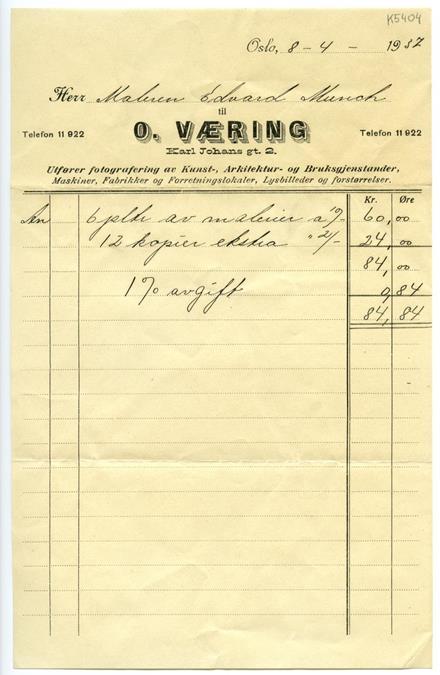 K5404
Oslo, 8 - 4 - 1937
Herr Maleren Edvard Munch
til
Telefon 11 922 O. VÆRING Telefon 11 922
Karl Johans gt. 2.
Utfører fotografering av Kunst-, Arkitektur- og Bruksgjenstander,
Maskiner, Fabrikker og Forretningslokaler, Lysbilleder og forstørrelser.
Kr. Øre
An 6 pltr av malerier a 10/- 60,00
12 kopier ekstra " 2/- 24,00
84,00
1% avgift 0,84
84,84